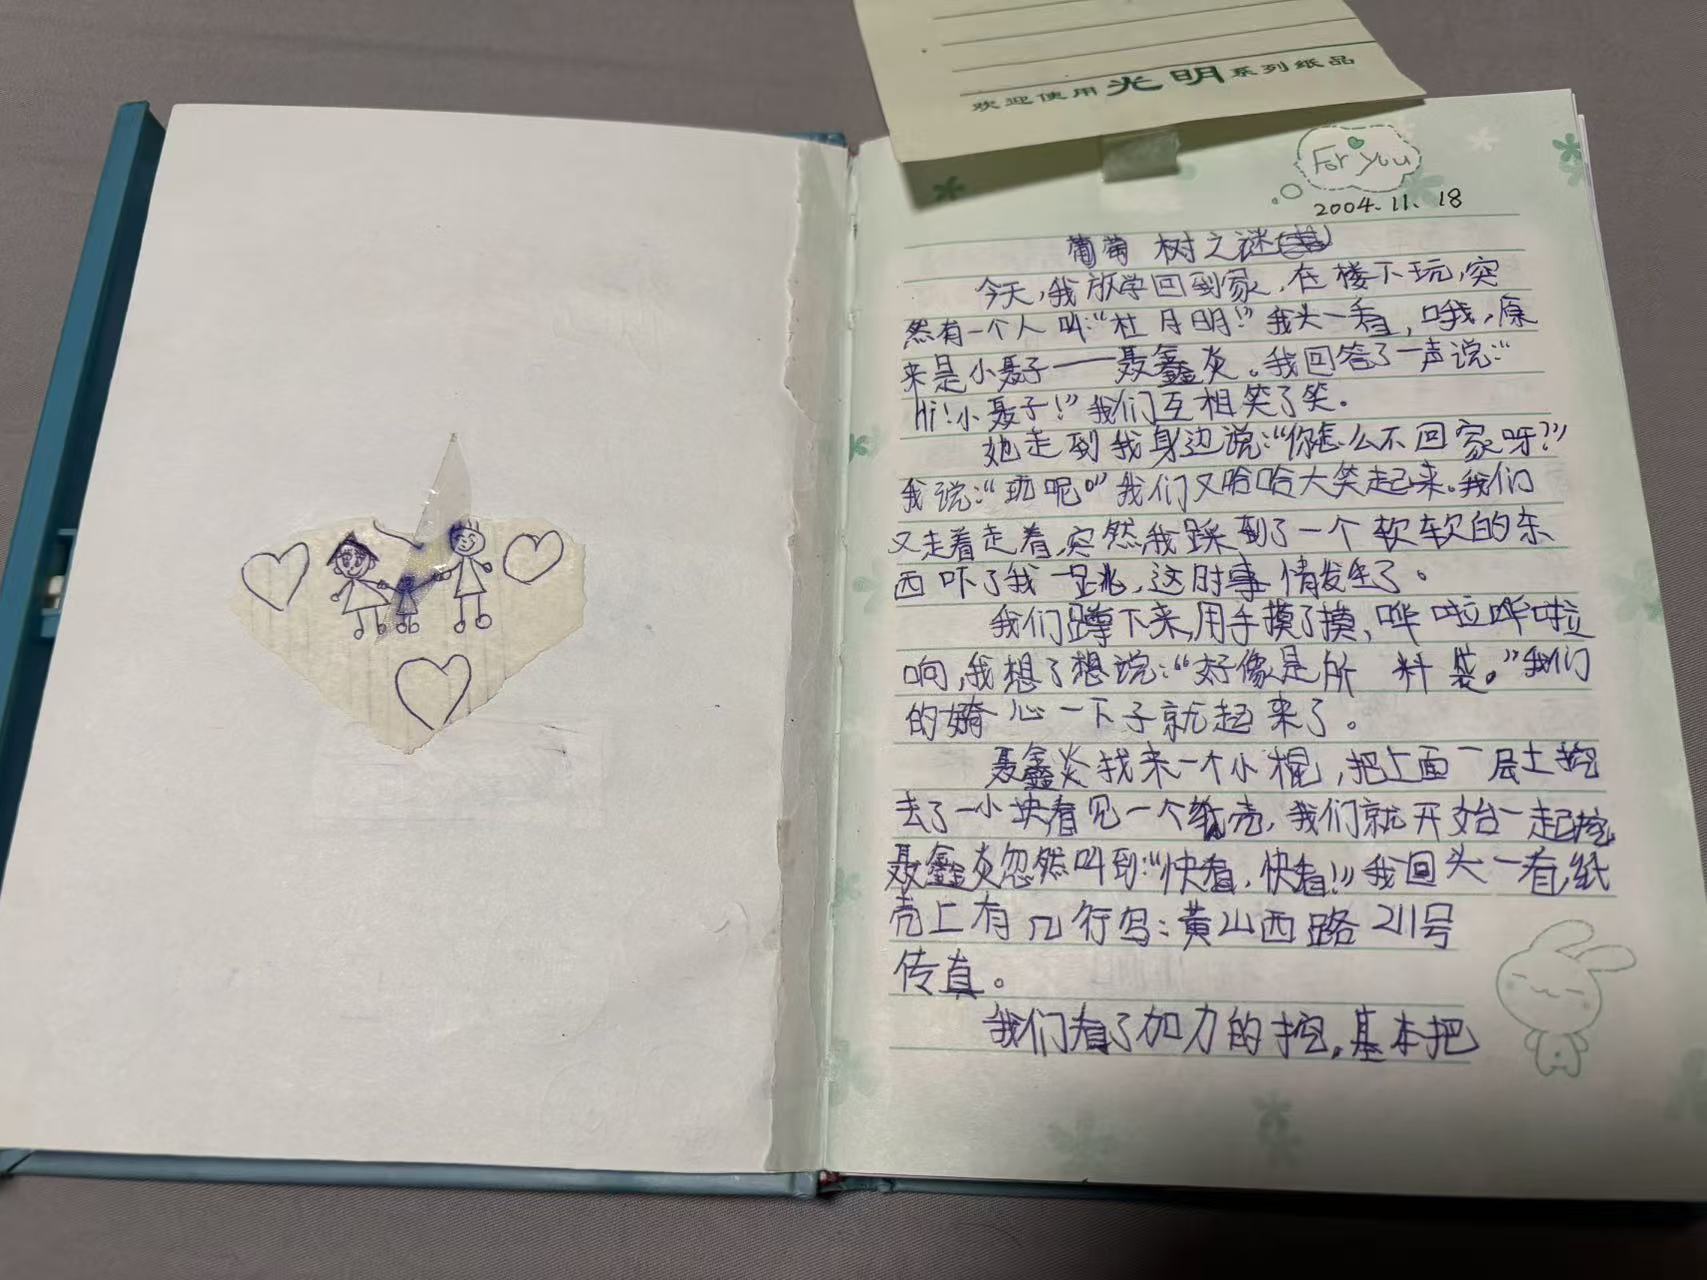 欢迎使用光明系列纸品
For you
2004.11.18
葡萄树之谜
今天,我放学回到家,在楼下玩,突
然有一个人叫:“杜月明!”我头一看,哦,原
来是小聂子——聂鑫炎。我回答了一声说:“
Hi!小聂子!”我们互相笑了笑。
她走到我身边说:“你怎么不回家呀?”
我说:“玩呢。”我们又哈哈大笑起来。我们
又走着走着,突然,我踩到了一个软软的东
西吓了我一跳,这时事情发生了。
我们蹲下来,用手摸了摸,哗啦哗啦
响,我想了想说:“好像是所料袋。”我们
的心一下子就起来了。
聂鑫炎找来一个小棍,把上面一层土挖
去了一小块看见一个纸壳,我们就开始一起挖,
聂鑫炎忽然叫到:“快看,快看!”我回头一看,纸
壳上有几行写:黄山西路211号
传真。
我们看了加力的挖,基本把